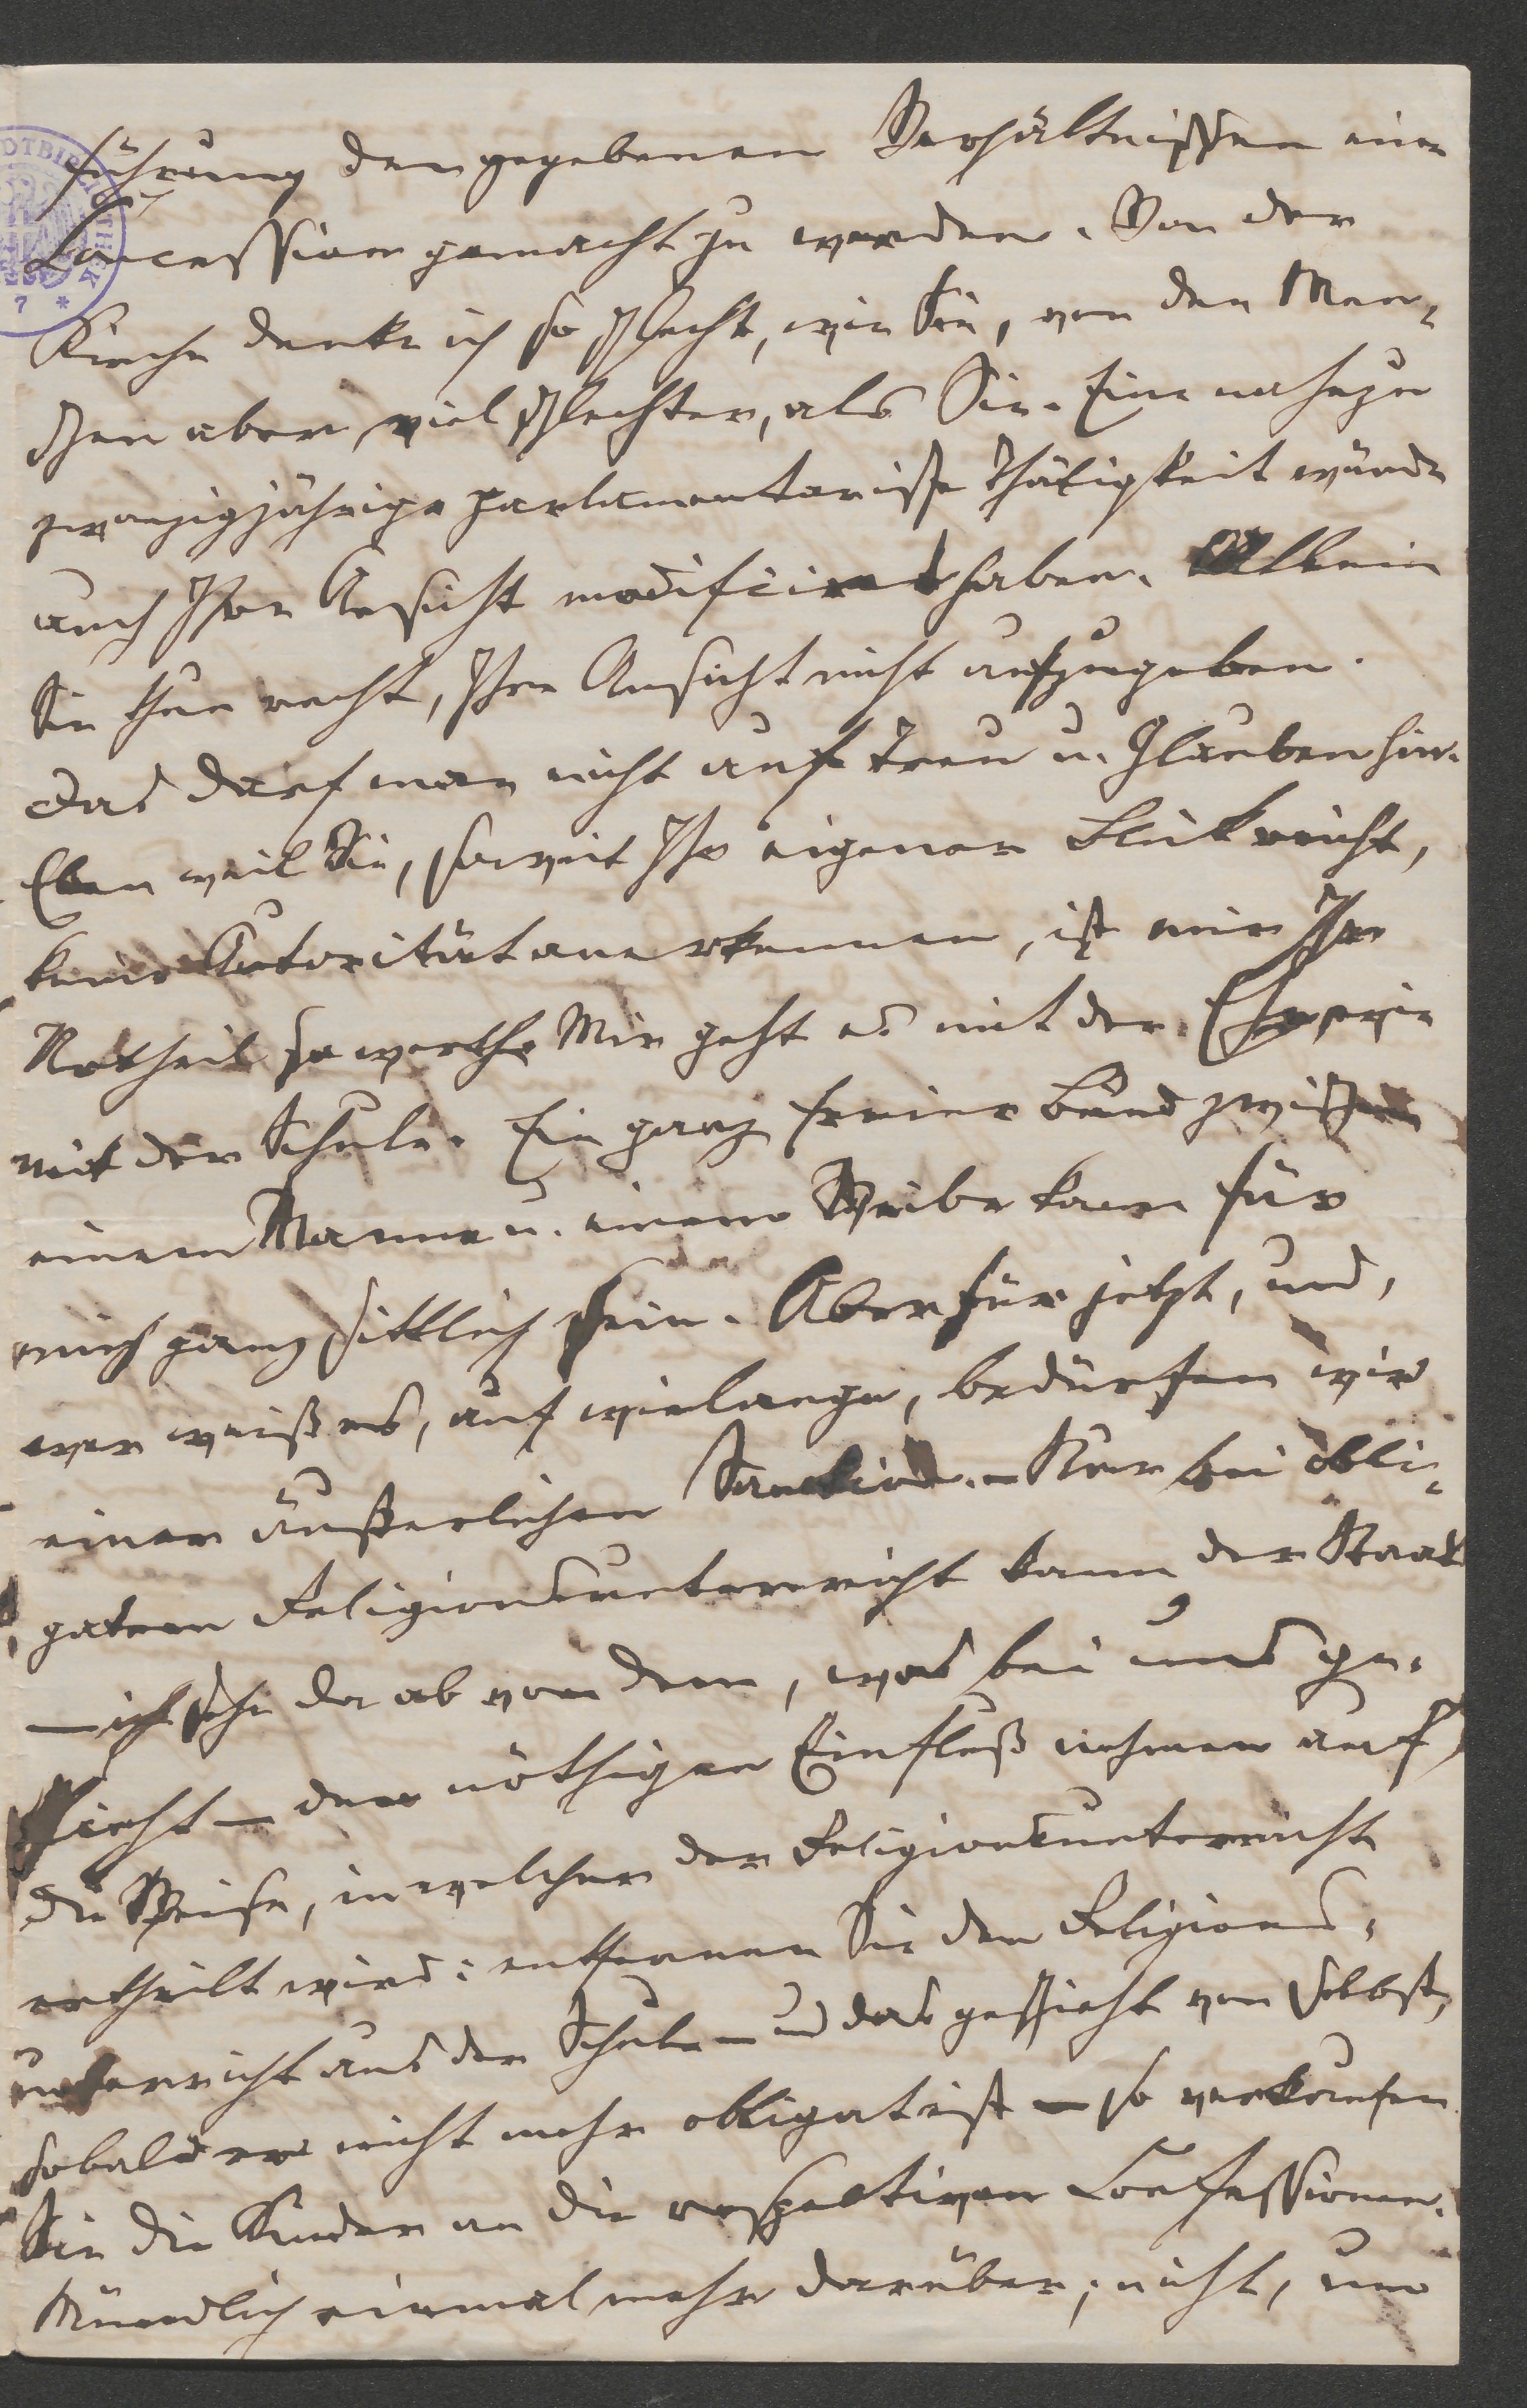 führung den gegebenen Verhältnissen eine
Concession gemacht zu werden. Von der
Kirche denke ich so schlecht, wie Sie, von den Men-
schen aber viel schlechter, als Sie. Eine nahezu
zwanzigjährige parlamentarische Thätigkeit würde
auch Ihre Ansicht modificirt haben. Allein
Sie thun recht, Ihre Ansicht nicht aufzugeben.
Das darf man nicht auf Treu u. Glauben hin.
Eben weil Sie, soweit Ihr eigener Blick reicht,
keine Autorität anerkennen, ist mir Ihr
Urtheil so werth. Mir geht es mit der Ehe wie
mit der Schule. Ein ganz freier Bund zwischen
einem Manne u. einem Weibe kann für
mich ganz sittlich sein. Aber für jetzt, und,
wer weiß es, auf wielange, bedürfen wir
einer äußerlichen Sanction. – Nur bei obli-
gatem Religionsunterricht kann der Staat
– ich sehe da ab von dem, was bei uns ge-
schieht – den nöthigen Einfluß nehmen auf
die Weise, in welcher der Religionsunterricht
ertheilt wird: entfernen Sie den Religions-
unterricht aus der Schule – und das geschieht von selbst,
sobald er nicht mehr obligat ist – so verkaufen
Sie die Kinder an die respectiven Confessionen.
Mündlich einmal mehr darüber; nicht, um
7 *